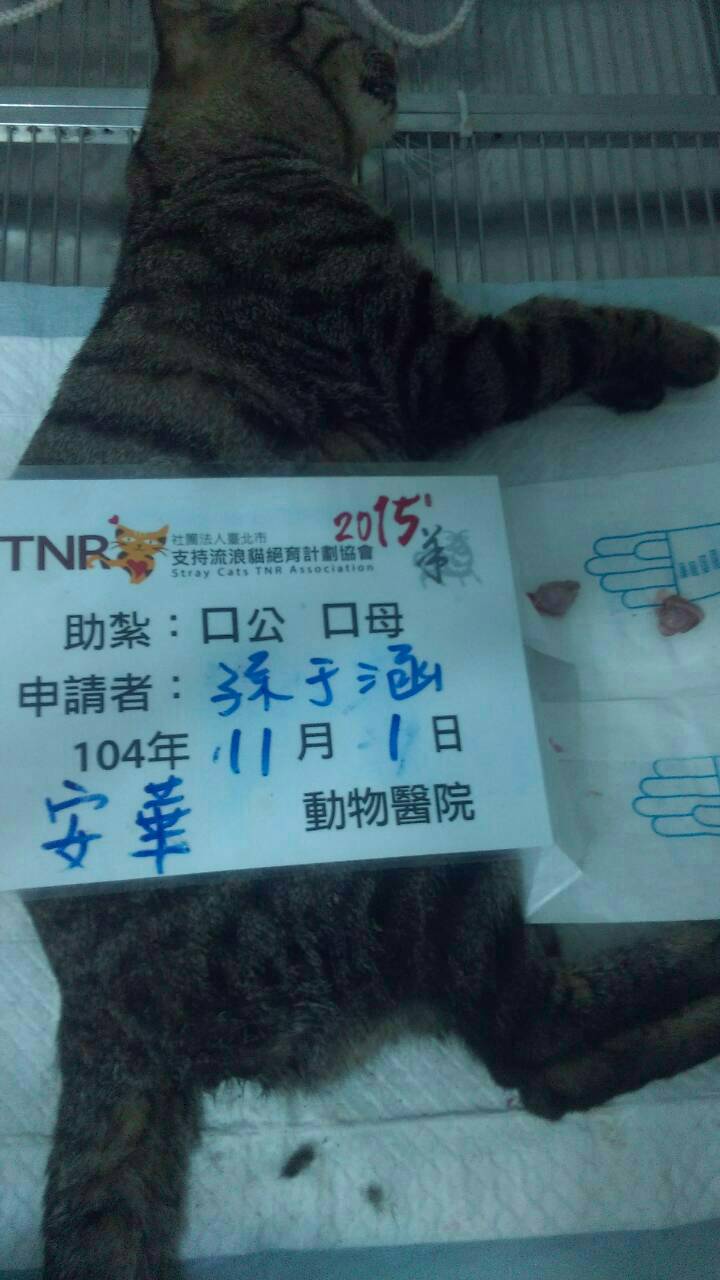 TNR 社團法人臺北市
支持流浪貓絕育計劃協會
Stray Cats TNR Association
2015
助紮：口公 口母
申請者：孫于涵
104年 11月 1日
安華 動物醫院